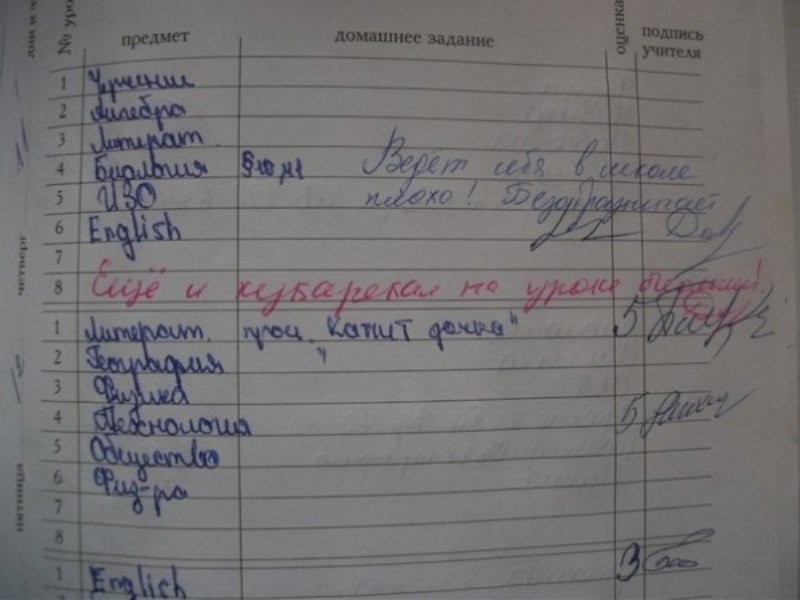 дни и ч
№ уро
предмет
домашнее задание
оценка
подпись учителя
1 Черчение
2 Алгебра
3 Литерат.
4 Биология §10 Ведет себя в школе
5 ИЗО плохо! Безобразничает
6 English
7
8 Ещё и кукарекал на уроке
четверг
1 Литерат. проч. "Капит дочка" 5
2 География "
3 Физика
4 Технология 5
5 Общество
6 Физ-ра
7
8
пятница
1 English 3